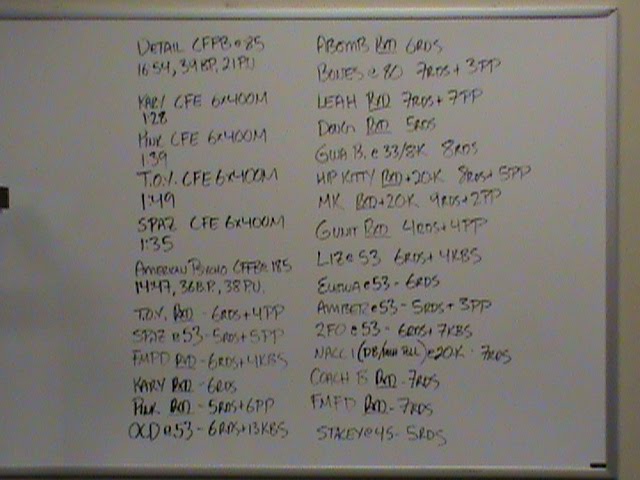 DETAIL CFFB @ 85
16:54, 39BP, 21PU
KARY CFE 6x400M
1:28
PINK CFE 6x400M
1:39
T.O.Y. CFE 6x400M
1:49
SPAZ CFE 6x400M
1:35
AMERICAN PSYCHO CFFB @ 185
14:47, 36BP, 38PU
T.O.Y. RXD - 6RDS+4PP
SPAZ @ 53 - 5RDS+5PP
FMPD RXD - 6RDS+4KBS
KARY RXD - 6RDS
PINK RXD - 5RDS+6PP
OCD @ 53 - 6RDS+13KBS
ABOMB RXD 6RDS
BONES @ 80 7RDS+3PP
LEAH RXD 7RDS+7PP
DOUG RXD 5RDS
GWA B. @ 33/8K 8RDS
HIP KITTY RXD+20K 8RDS+5PP
MK RXD+20K 9RDS+2PP
GUNIT RXD 4RDS+4PP
LIZ @ 53 6RDS+4KBS
@ 53 - 6RDS
AMBER @ 53 - 5RDS+3PP
2FO @ 53 - 6RDS+7KBS
NACCI (DB/ PULL) @ 20K - 7RDS
COACH B RXD - 7RDS
FMFD RXD - 7RDS
STACEY @ 45 - 5RDS